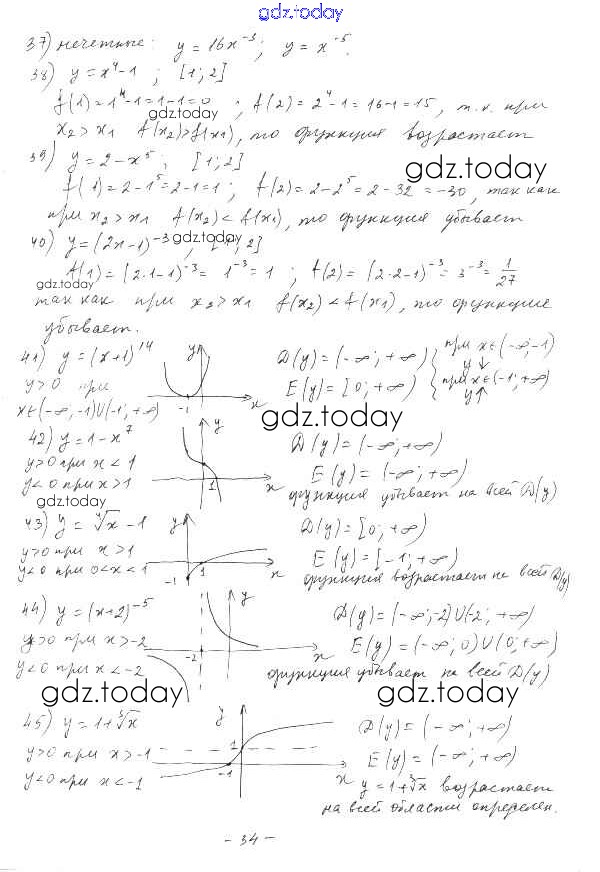 gdz.today
37) нечетные: y = 16x⁻³; y = x⁻⁵.
38) y = x⁴-1 ; [1; 2]
f(1) = 1⁴-1 = 1-1 = 0 ; f(2) = 2⁴-1 = 16-1 = 15, т.к. при
gdz.today
x₂ > x₁ f(x₂) > f(x₁), то функция возрастает
39) y = 2-x⁵ ; [1; 2]
gdz.today
f(1) = 2-1⁵ = 2-1 = 1 ; f(2) = 2-2⁵ = 2-32 = -30, так как
при x₂ > x₁ f(x₂) < f(x₁), то функция убывает
40) y = (2x-1)⁻³, [1; 2]
gdz.today
f(1) = (2·1-1)⁻³ = 1⁻³ = 1 ; f(2) = (2·2-1)⁻³ = 3⁻³ = 1/27
gdz.today
так как при x₂ > x₁ f(x₂) < f(x₁), то функция
убывает.
41) y = (x+1)¹⁴ y D(y) = (-∞; +∞) при x∈(-∞; -1)
y↓
y > 0 при -1 x E(y) = [0; +∞) при x∈(-1; +∞)
y↑
x∈(-∞; -1)U(-1; +∞)
gdz.today
42) y = 1-x⁷ y D(y) = (-∞; +∞)
y > 0 при x < 1 E(y) = (-∞; +∞)
y < 0 при x > 1 1 x функция убывает на всей D(y)
gdz.today
43) y = ⁴√x - 1 y D(y) = [0; +∞)
y > 0 при x > 1 1 E(y) = [-1; +∞)
y < 0 при 0 < x < 1 -1 x функция возрастает на всей D(y)
44) y = (x+2)⁻⁵ y D(y) = (-∞; -2)U(-2; +∞)
y > 0 при x > -2 -2 x E(y) = (-∞; 0)U(0; +∞)
y < 0 при x < -2 функция убывает на всей D(y)
gdz.today
gdz.today
45) y = 1+³√x y D(y) = (-∞; +∞)
y > 0 при x > -1 1 E(y) = (-∞; +∞)
y < 0 при x < -1 -1 x y = 1+³√x возрастает
на всей области определен.
- 34 -